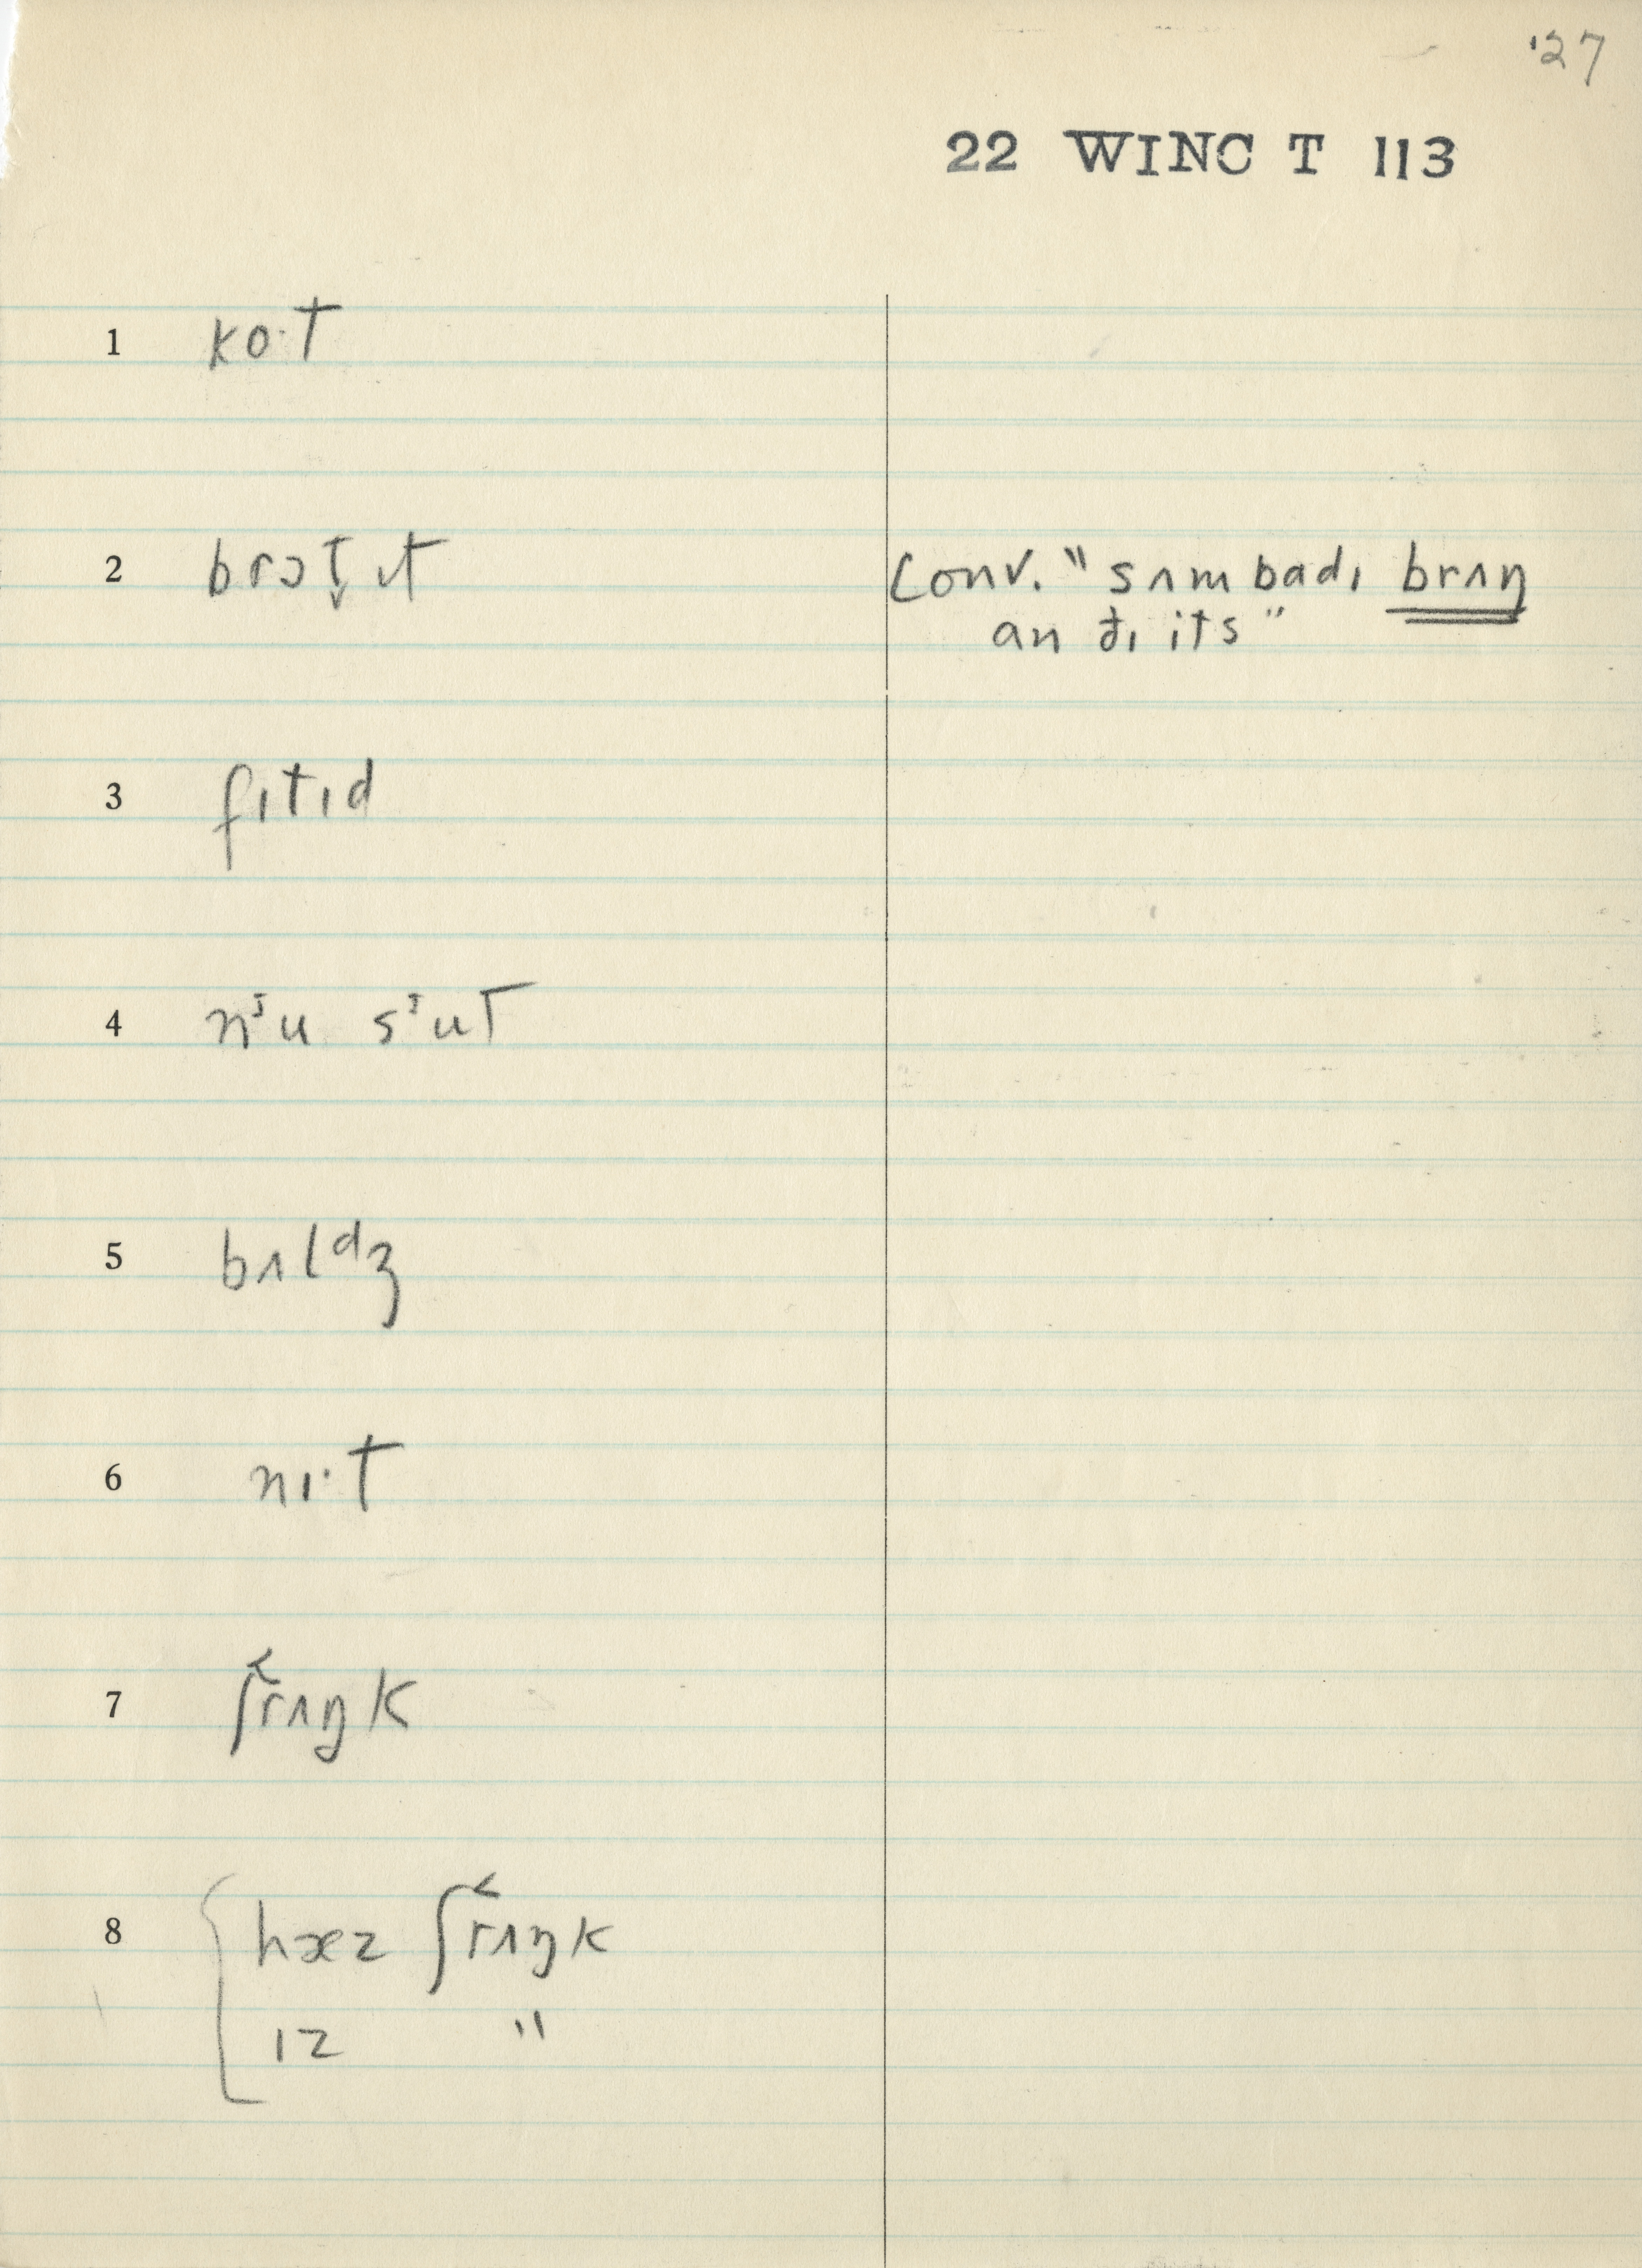 '27
22 WINC T 113
1 ko·t
2 brɔt̬ ɪt
Conv. "sʌmbadɪ brʌŋ
an ðɪ its"
3 fɪtɪd
4 nᶾu sᶾut
5 bʌlᵈʒ
6 nɪ·t
7 ʃr̆ʌŋk
8 hæz ʃr̆ʌŋk
ɪz "